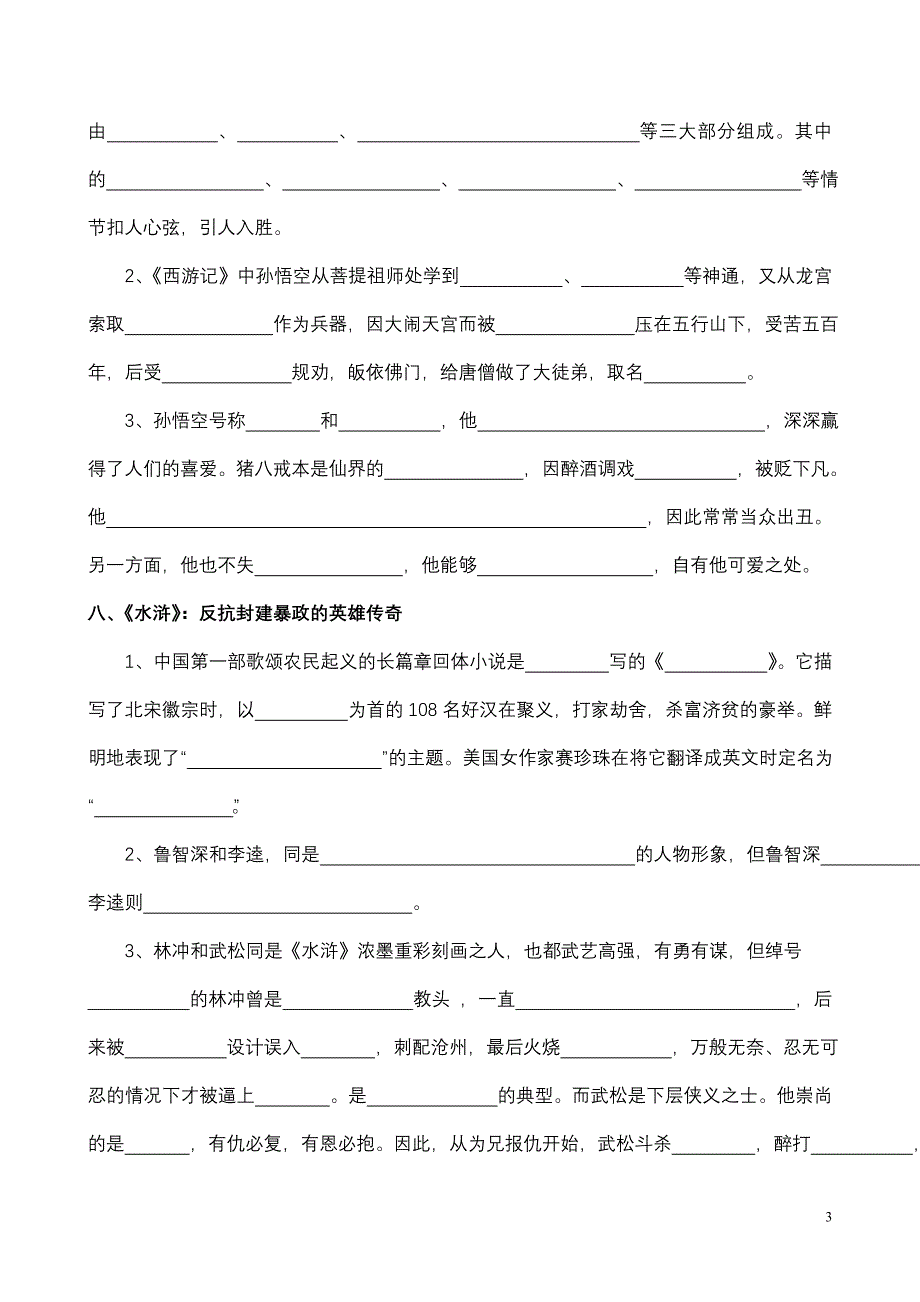 由____________、___________、______________________________等三大部分组成。其中
的_________________、_________________、_________________、__________________等情
节扣人心弦，引人入胜。
2、《西游记》中孙悟空从菩提祖师处学到___________、___________等神通，又从龙宫
索取________________作为兵器，因大闹天宫而被_______________压在五行山下，受苦五百
年，后受______________规劝，皈依佛门，给唐僧做了大徒弟，取名___________。
3、孙悟空号称________和___________，他_______________________________，深深赢
得了人们的喜爱。猪八戒本是仙界的_______________，因醉酒调戏___________，被贬下凡。
他__________________________________________________________，因此常常当众出丑。
另一方面，他也不失________________，他能够___________________，自有他可爱之处。
八、《水浒》：反抗封建暴政的英雄传奇
1、中国第一部歌颂农民起义的长篇章回体小说是_________写的《___________》。它描
写了北宋徽宗时，以__________为首的 108 名好汉在聚义，打家劫舍，杀富济贫的豪举。鲜
明地表现了“_____________________”的主题。美国女作家赛珍珠在将它翻译成英文时定名为
“_______________”。
2、鲁智深和李逵，同是__________________________________的人物形象，但鲁智深___________
李逵则_____________________________。
3、林冲和武松同是《水浒》浓墨重彩刻画之人，也都武艺高强，有勇有谋，但绰号
___________的林冲曾是______________教头 ，一直______________________________，后
来被___________设计误入________，刺配沧州，最后火烧____________，万般无奈、忍无可
忍的情况下才被逼上________。是______________的典型。而武松是下层侠义之士。他崇尚
的是_______，有仇必复，有恩必抱。因此，从为兄报仇开始，武松斗杀_________，醉打___________，
3